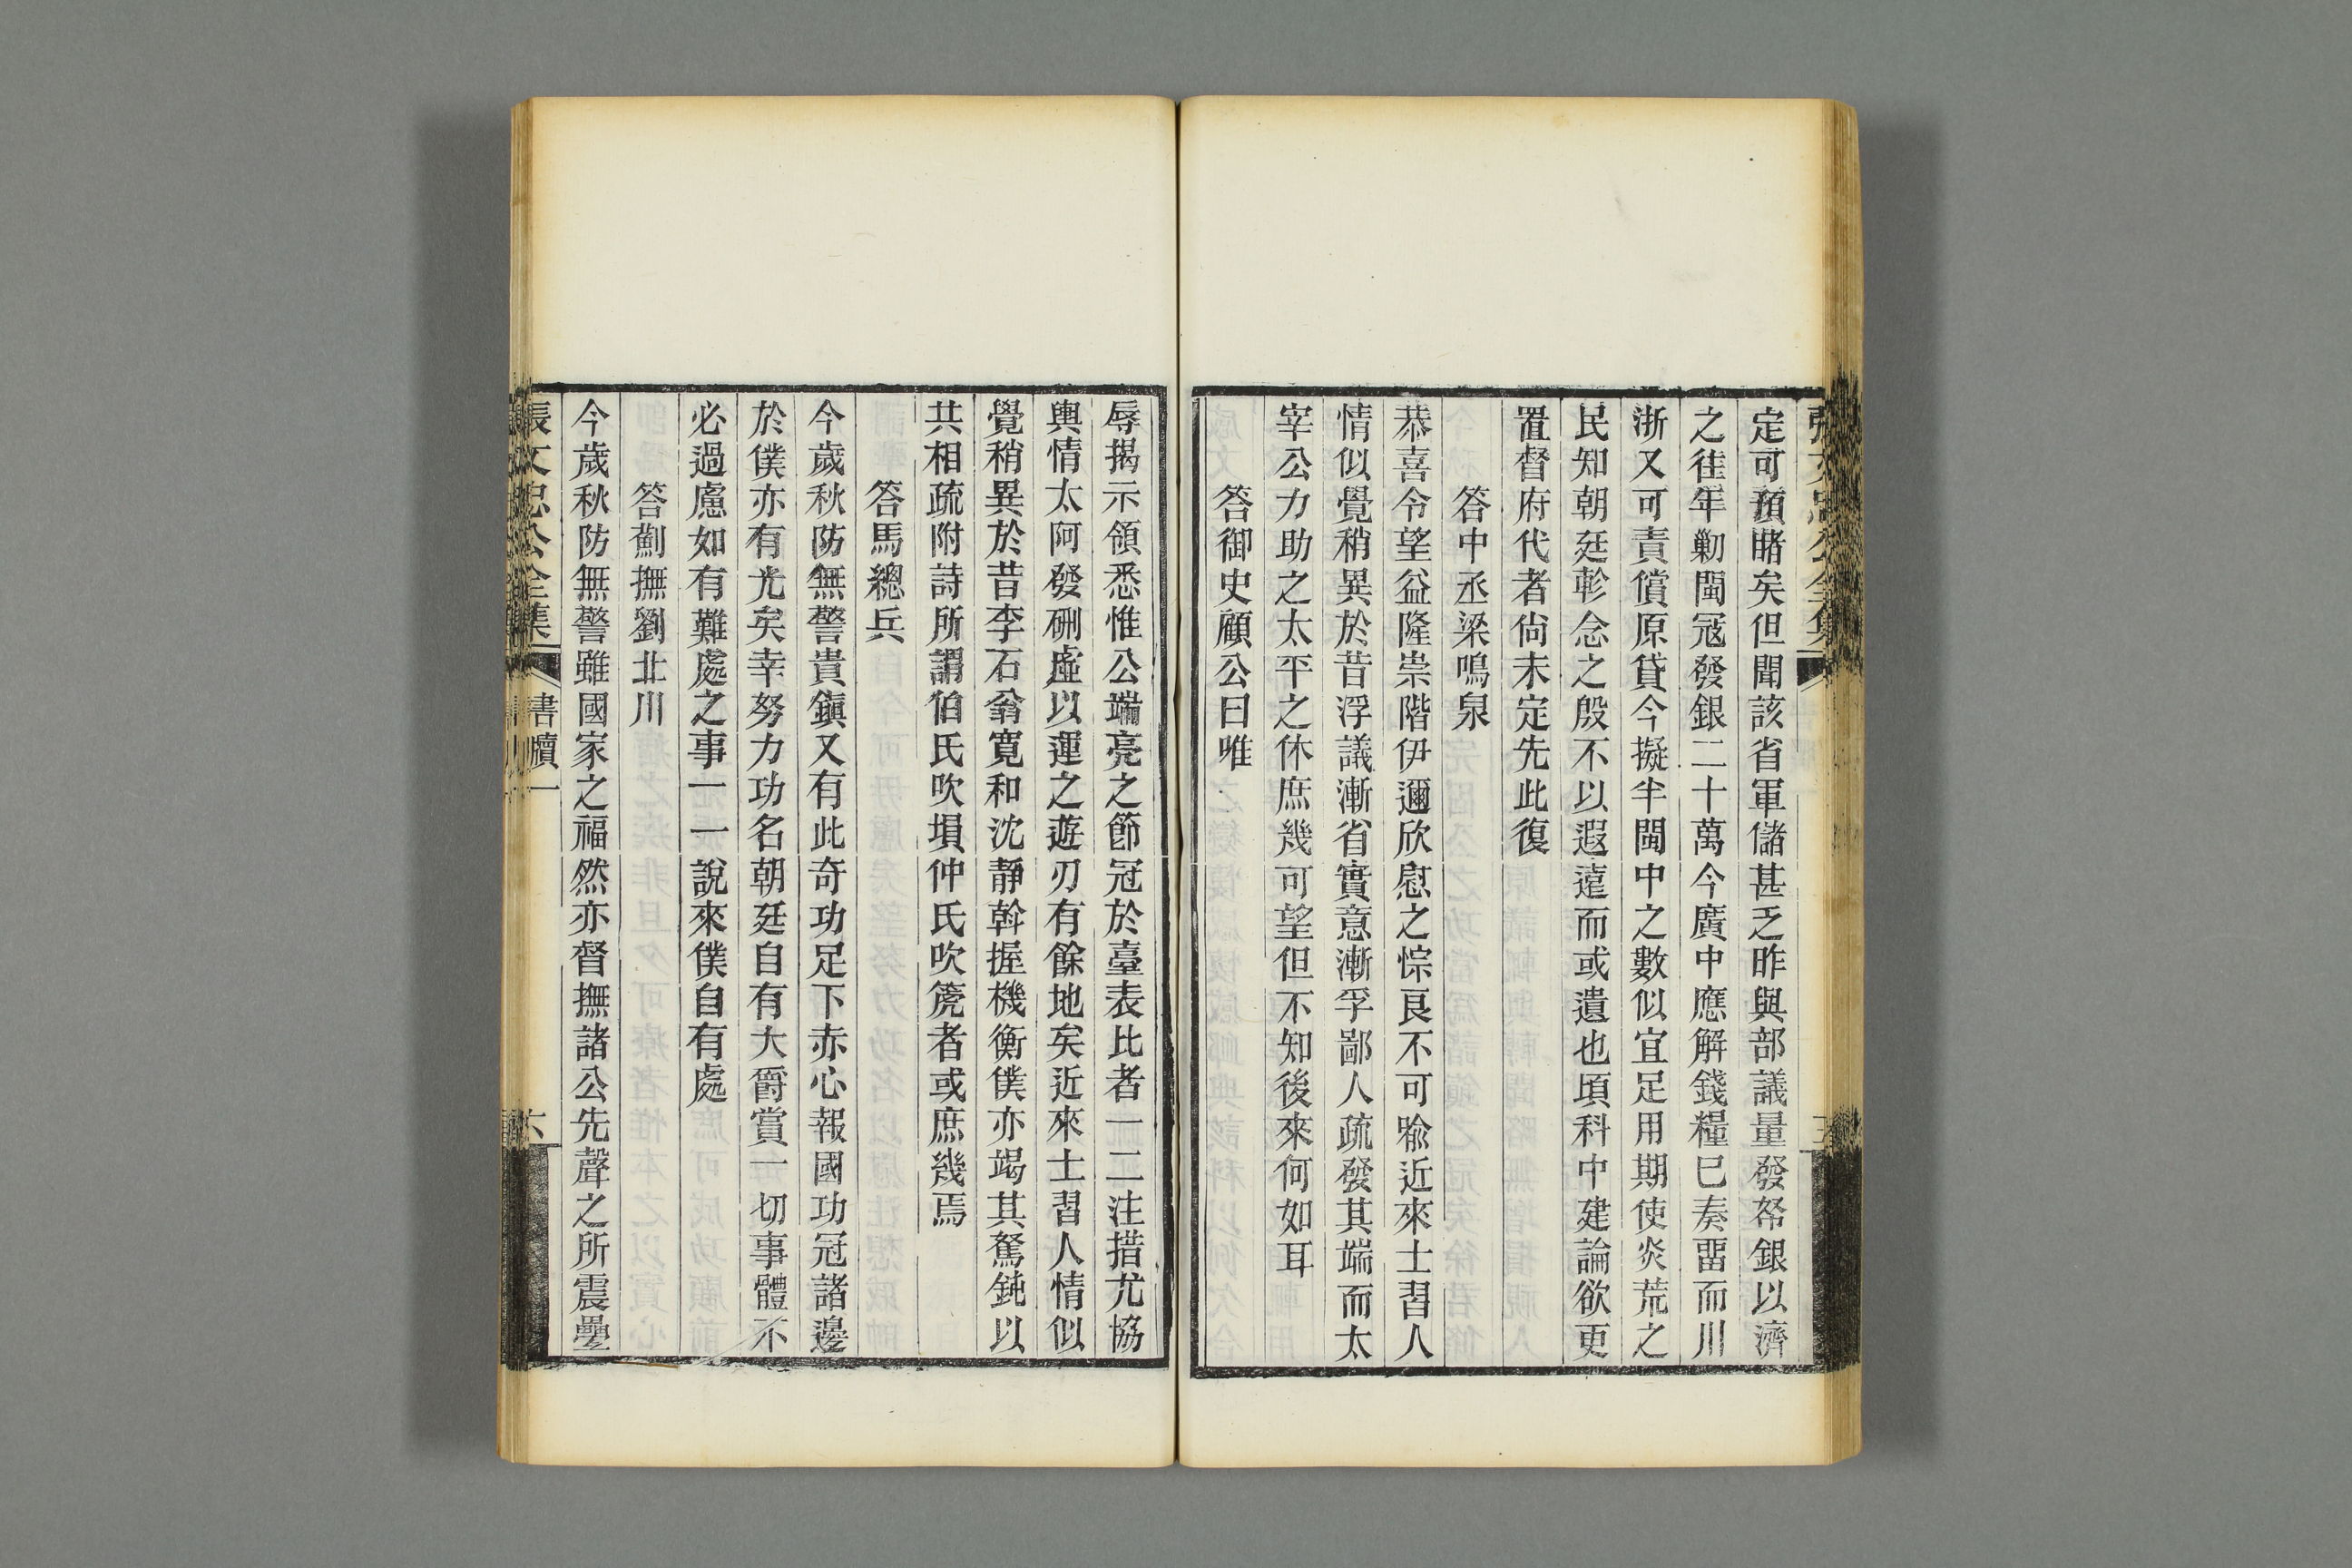 定可預睹矣但聞該省軍儲甚乏昨與部議量發帑銀以濟
之徃年勦閩冦發銀二十萬今廣中應解錢糧已奏畱而川
浙又可責償原貸今擬半閩中之數似宜足用期使炎荒之
民知朝廷軫念之殷不以遐遠而或遺也頃科中建論欲更
置督府代者尙未定先此復
答中丞梁鳴泉
恭喜令望益隆崇階伊邇欣慰之悰良不可喻近來士習人
情似覺稍異於昔浮議漸省實意漸孚鄙人疏發其端而太
宰公力助之太平之休庶幾可望但不知後來何如耳
答御史顧公曰唯
辱揭示領悉惟公端亮之節冠於臺表比者一二注措尤協
輿情太阿發硎虛以運之遊刃有餘地矣近來士習人情似
覺稍異於昔李石翁寬和沈靜斡握機衡僕亦竭其駑鈍以
共相疏附詩所謂伯氏吹塤仲氏吹篪者或庶幾焉
答馬總兵
今歲秋防無警貴鎭又有此奇功足下赤心報國功冠諸邊
於僕亦有光矣幸努力功名朝廷自有大爵賞一切事體不
必過慮如有難處之事一一說來僕自有處
答薊撫劉北川
今歲秋防無警雖國家之福然亦督撫諸公先聲之所震疊
張文忠公全集
書牘一
六